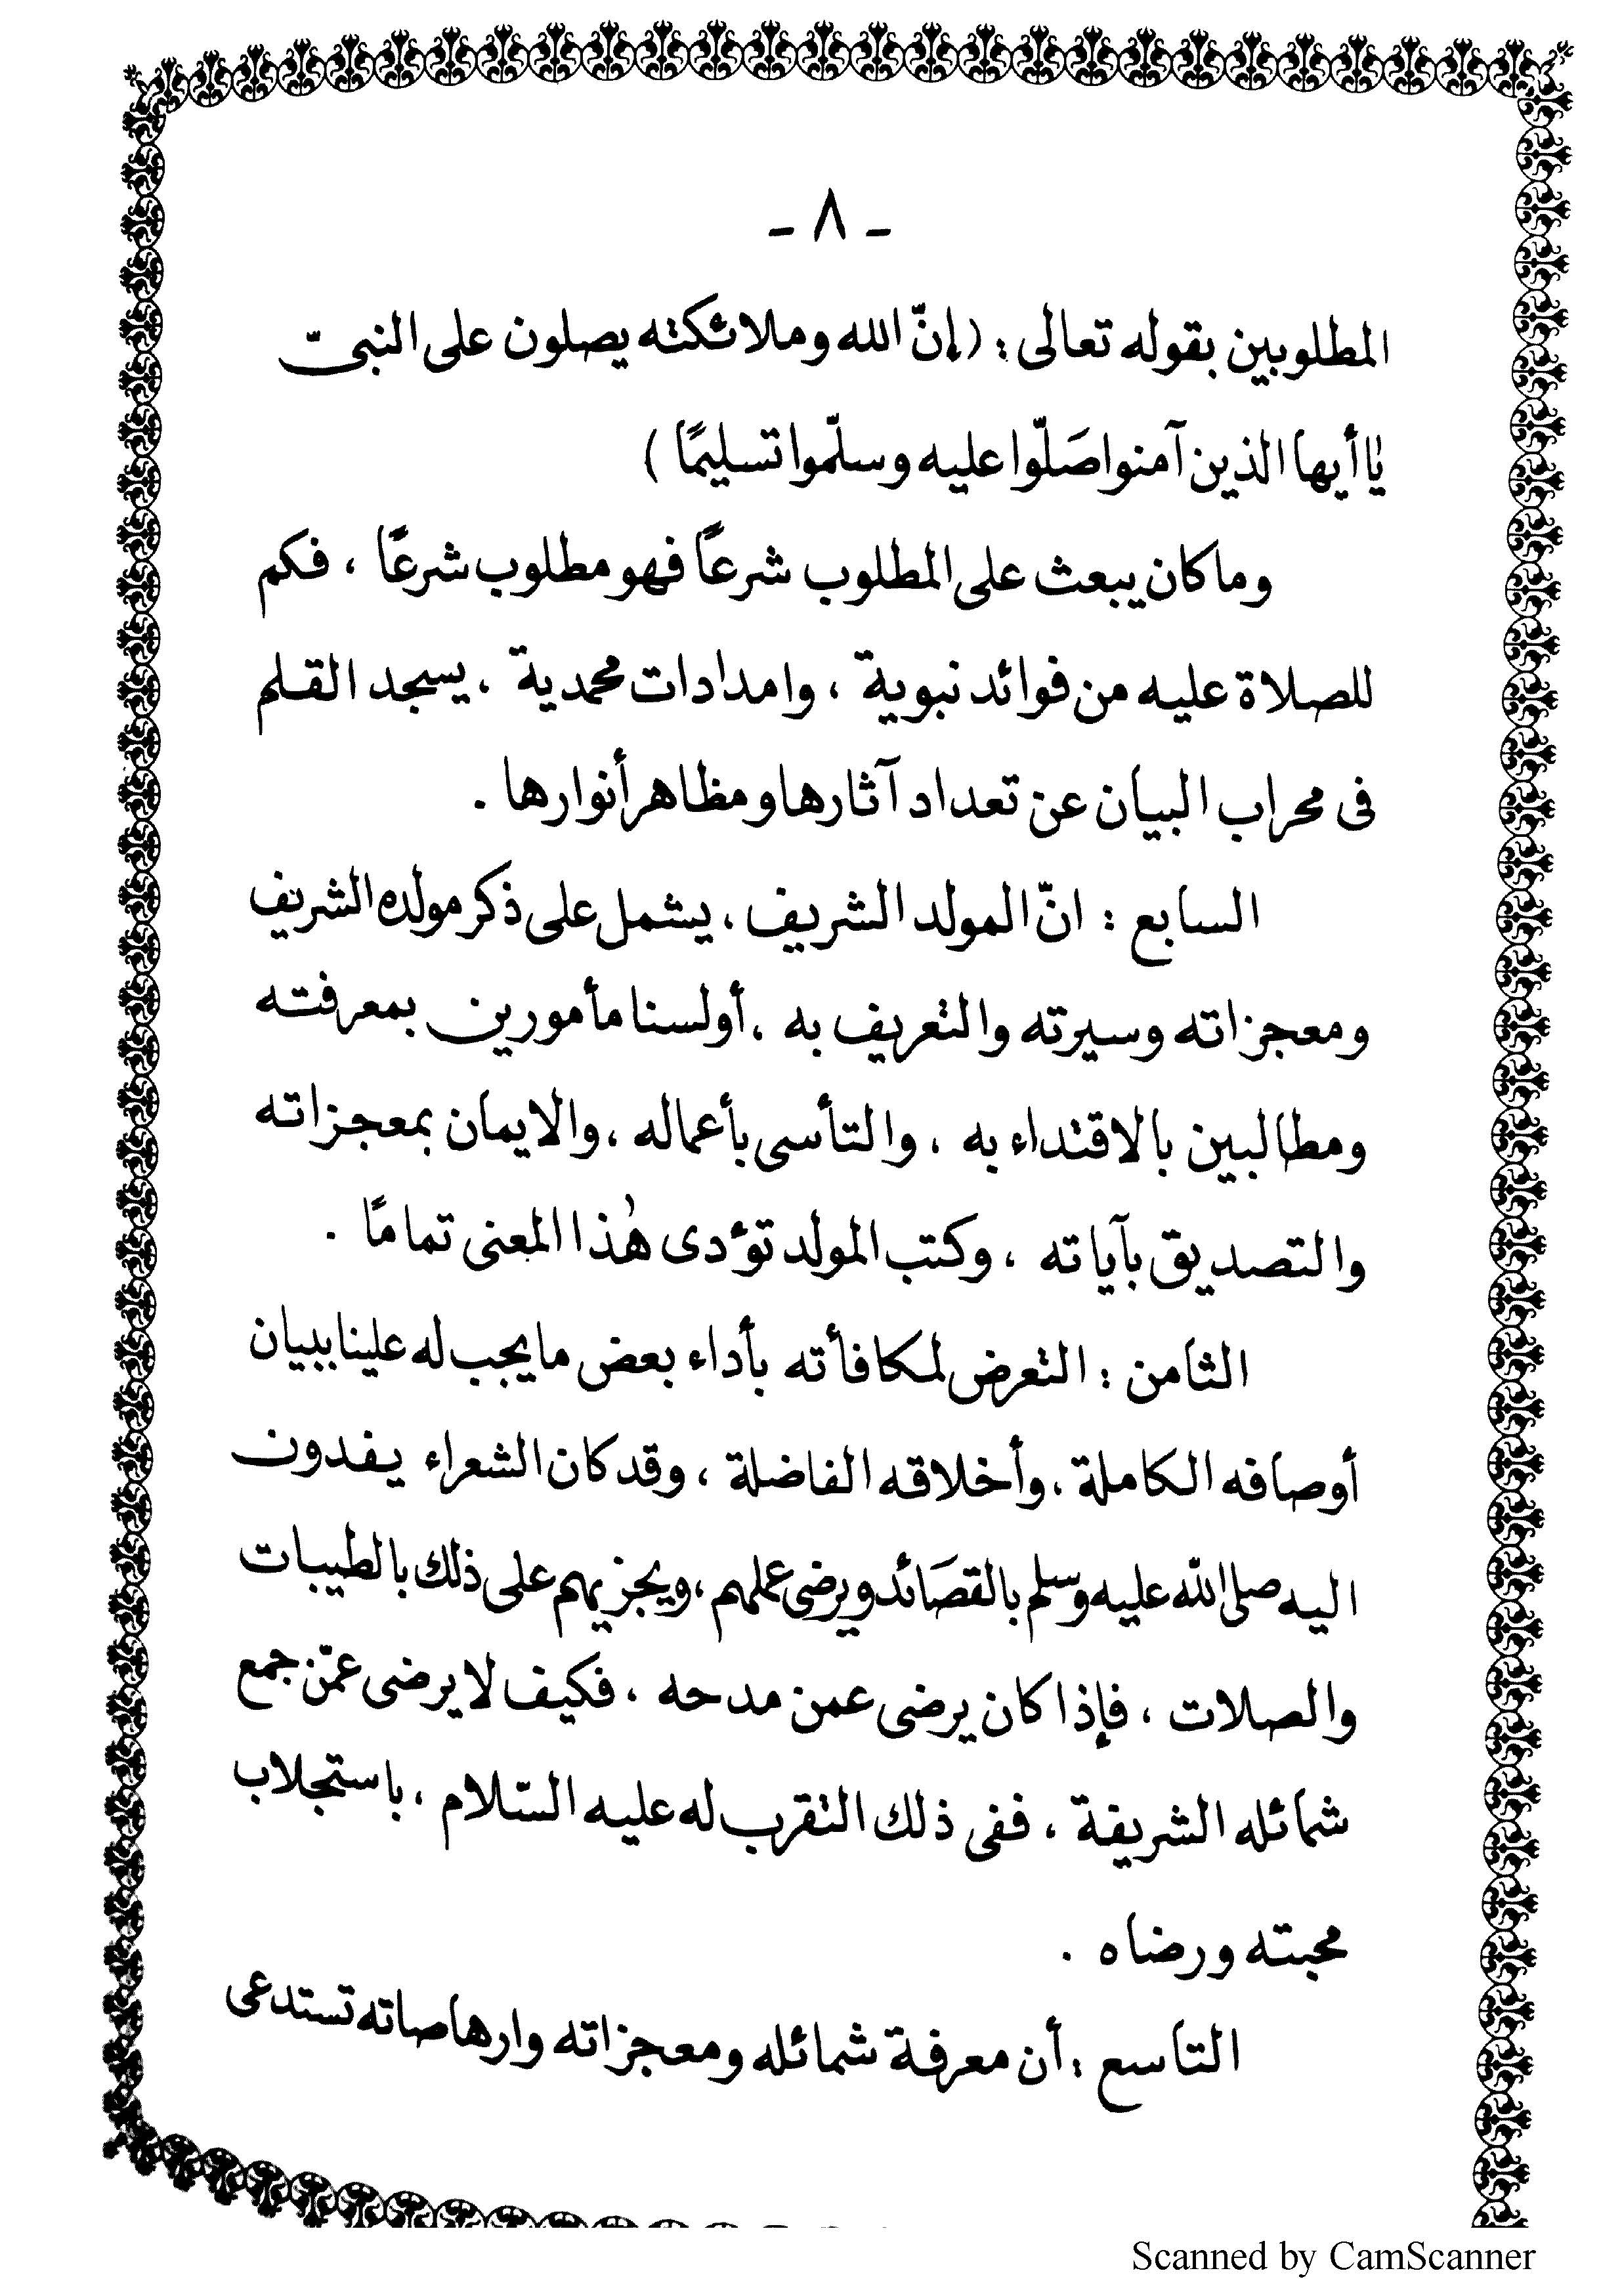 - ٨ -
المطلوبين بقوله تعالى : (إنّ الله وملائكته يصلون على النبىّ
يٰاأيها الذين آمنوا صَلّوا عليه وسلّموا تسليمًا )
وما كان يبعث على المطلوب شرعًا فهو مطلوب شرعًا ، فكم
للصلاة عليه من فوائد نبوية ، وامدادات محمدية ، يسجد القلم
فى محراب البيان عن تعداد آثارها ومظاهر أنوارها .
السابع : انّ المولد الشريف ، يشمل على ذكر مولده الشريف
ومعجزاته وسيرته والتعريف به ، أولسنا مأمورين بمعرفته
ومطالبين بالاقتداء به ، والتأسى بأعماله ، والايمان بمعجزاته
والتصديق بآياته ، وكتب المولد تؤدى هٰذا المعنى تمامًا .
الثامن : التعرض لمكافأته بأداء بعض ما يجب له علينا ببيان
أوصافه الكاملة ، وأخلاقه الفاضلة ، وقد كان الشعراء يفدون
اليه صلى الله عليه وسلم بالقصَائد ويرضى عملهم ، ويجزيهم على ذلك بالطيبات
والصلات ، فإذا كان يرضى عمن مدحه ، فكيف لا يرضى عمّن جمع
شمائله الشريفة ، ففى ذلك التقرب له عليه السّلام ، باستجلاب
محبته ورضاه .
التاسع : أن معرفة شمائله ومعجزاته وارهاصاته تستدعى
Scanned by CamScanner